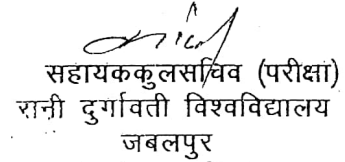 सहायककुलसचिव (परीक्षा)
रानी दुर्गावती विश्वविद्यालय
जबलपुर